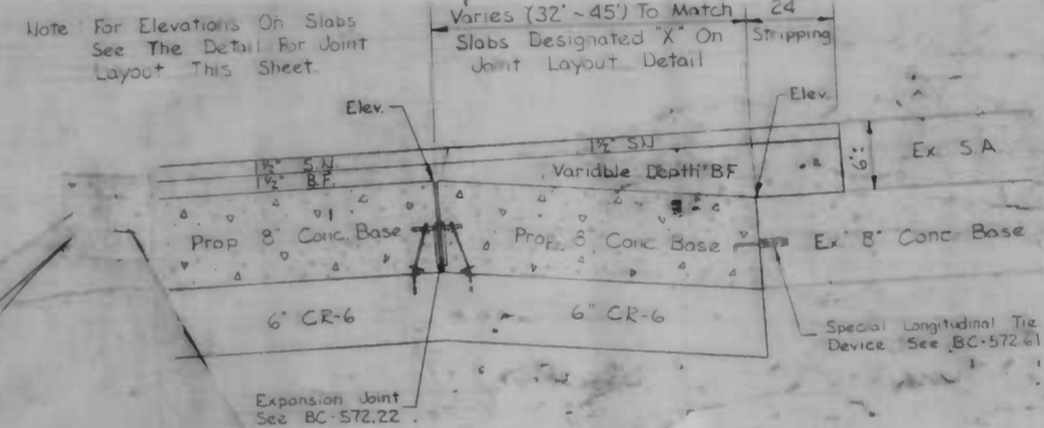 Note: For Elevations On Slabs
See The Detail For Joint
Layout This Sheet
Varies (32' ~ 45') To Match
Slabs Designated "X" On
Joint Layout Detail
24
Stripping
Elev.
Elev.
1½" S.N.
1½" B.F.
1½" SN
Variable Depth BF
Ex. S.A
Prop 8" Conc. Base
Prop. 8" Conc Base
Ex 8" Conc Base
6" CR-6
6" CR-6
Special Longitudinal Tie
Device See BC-572.61
Expansion Joint
See BC-572.22